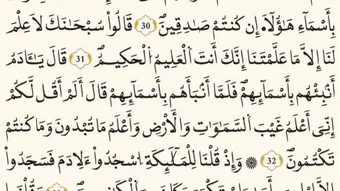 بِأَسْمَآءِ هَٰٓؤُلَآءِ إِن كُنتُمْ صَٰدِقِينَ ٣٠ قَالُوا۟ سُبْحَٰنَكَ لَا عِلْمَ
لَنَآ إِلَّا مَا عَلَّمْتَنَآ إِنَّكَ أَنتَ ٱلْعَلِيمُ ٱلْحَكِيمُ ٣١ قَالَ يَٰٓـَٔادَمُ
أَنۢبِئْهُم بِأَسْمَآئِهِمْ فَلَمَّآ أَنۢبَأَهُم بِأَسْمَآئِهِمْ قَالَ أَلَمْ أَقُل لَّكُمْ
إِنِّىٓ أَعْلَمُ غَيْبَ ٱلسَّمَٰوَٰتِ وَٱلْأَرْضِ وَأَعْلَمُ مَا تُبْدُونَ وَمَا كُنتُمْ
تَكْتُمُونَ ٣٢ ۞ وَإِذْ قُلْنَا لِلْمَلَٰٓئِكَةِ ٱسْجُدُوا۟ لِـَٔادَمَ فَسَجَدُوٓا۟